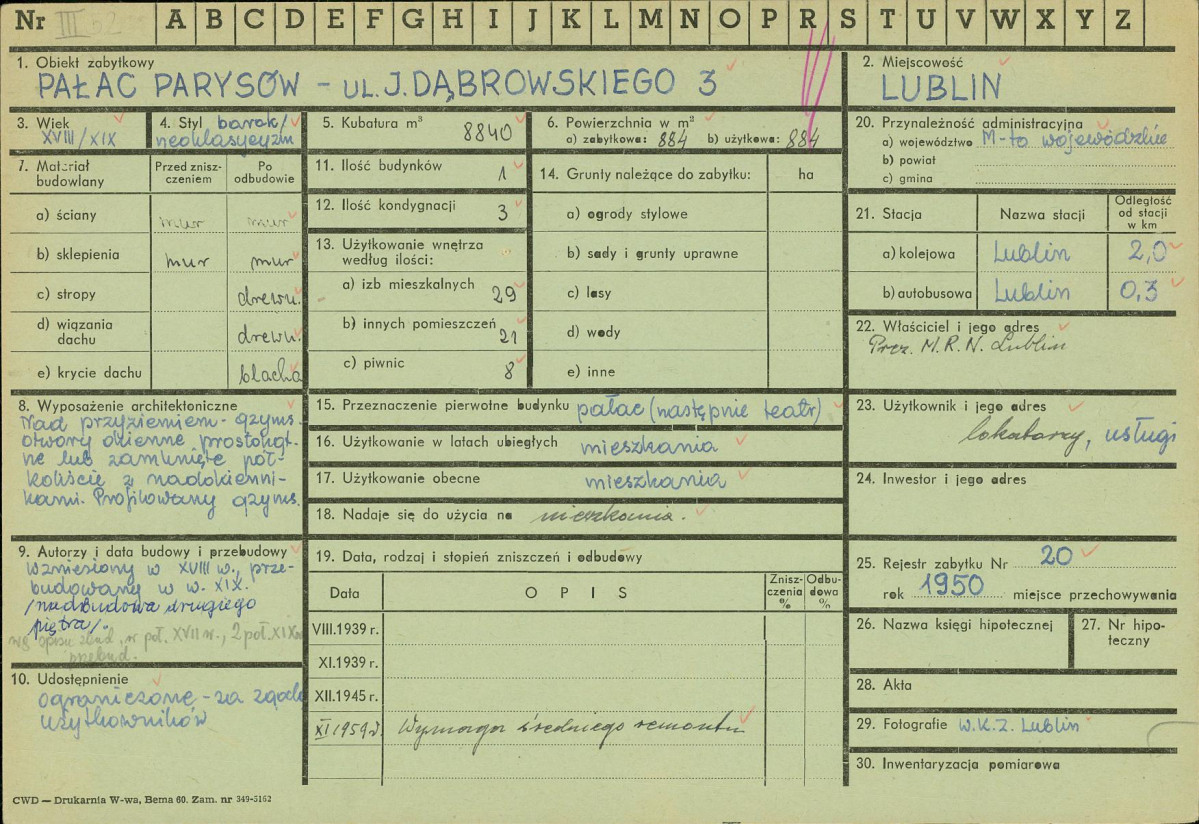 Nr III 32 A B C D E F G H I J K L M N O P R S T U V W X Y Z
1. Obiekt zabytkowy
PAŁAC PARYSÓW – UL. J. DĄBROWSKIEGO 3
2. Miejscowość
LUBLIN
3. Wiek
XVIII/XIX
4. Styl barok/
neoklasycyzm
5. Kubatura m³ 8840
6. Powierzchnia w m²
a) zabytkowa: 884 b) użytkowa: 884
7. Materiał budowlany
Przed zniszczeniem
Po odbudowie
a) ściany mur mur
b) sklepienia mur mur
c) stropy drewn.
d) wiązania dachu drewn.
e) krycie dachu blacha
8. Wyposażenie architektoniczne
Nad przyziemiem gzyms.
otwory okienne prostokąt-
ne lub zamknięte pół-
koliście z nadokienni-
kami. Profilowany gzyms.
9. Autorzy i data budowy i przebudowy
Wzniesiony w XVIII w., prze-
budowany w w. XIX.
/nadbudowa drugiego
piętra/.
wg opisu zbud. w poł. XVII w., 2 poł. XIX w.
przebud.
10. Udostępnienie
ograniczone – za zgodą
użytkowników
11. Ilość budynków 1
12. Ilość kondygnacji 3
13. Użytkowanie wnętrza
według ilości:
a) izb mieszkalnych 29
b) innych pomieszczeń 21
c) piwnic 8
14. Grunty należące do zabytku: ha
a) ogrody stylowe
b) sady i grunty uprawne
c) lasy
d) wody
e) inne
15. Przeznaczenie pierwotne budynku pałac (następnie teatr)
16. Użytkowanie w latach ubiegłych mieszkania
17. Użytkowanie obecne mieszkania
18. Nadaje się do użycia na mieszkania.
19. Data, rodzaj i stopień zniszczeń i odbudowy
Data OPIS Zniszczenia % Odbudowa %
VIII.1939 r.
XI.1939 r.
XII.1945 r.
XI 1959 r. Wymaga średniego remontu
20. Przynależność administracyjna
a) województwo M-to wojewódzkie
b) powiat
c) gmina
21. Stacja Nazwa stacji Odległość od stacji w km
a) kolejowa Lublin 2,0
b) autobusowa Lublin 0,3
22. Właściciel i jego adres
Prez. M.R.N. Lublin
23. Użytkownik i jego adres
lokatorzy, usługi
24. Inwestor i jego adres
25. Rejestr zabytku Nr 20
rok 1950 miejsce przechowywania
26. Nazwa księgi hipotecznej
27. Nr hipo-
teczny
28. Akta
29. Fotografie W.K.Z. Lublin
30. Inwentaryzacja pomiarowa
CWD — Drukarnia W-wa, Bema 60. Zam. nr 349-5162